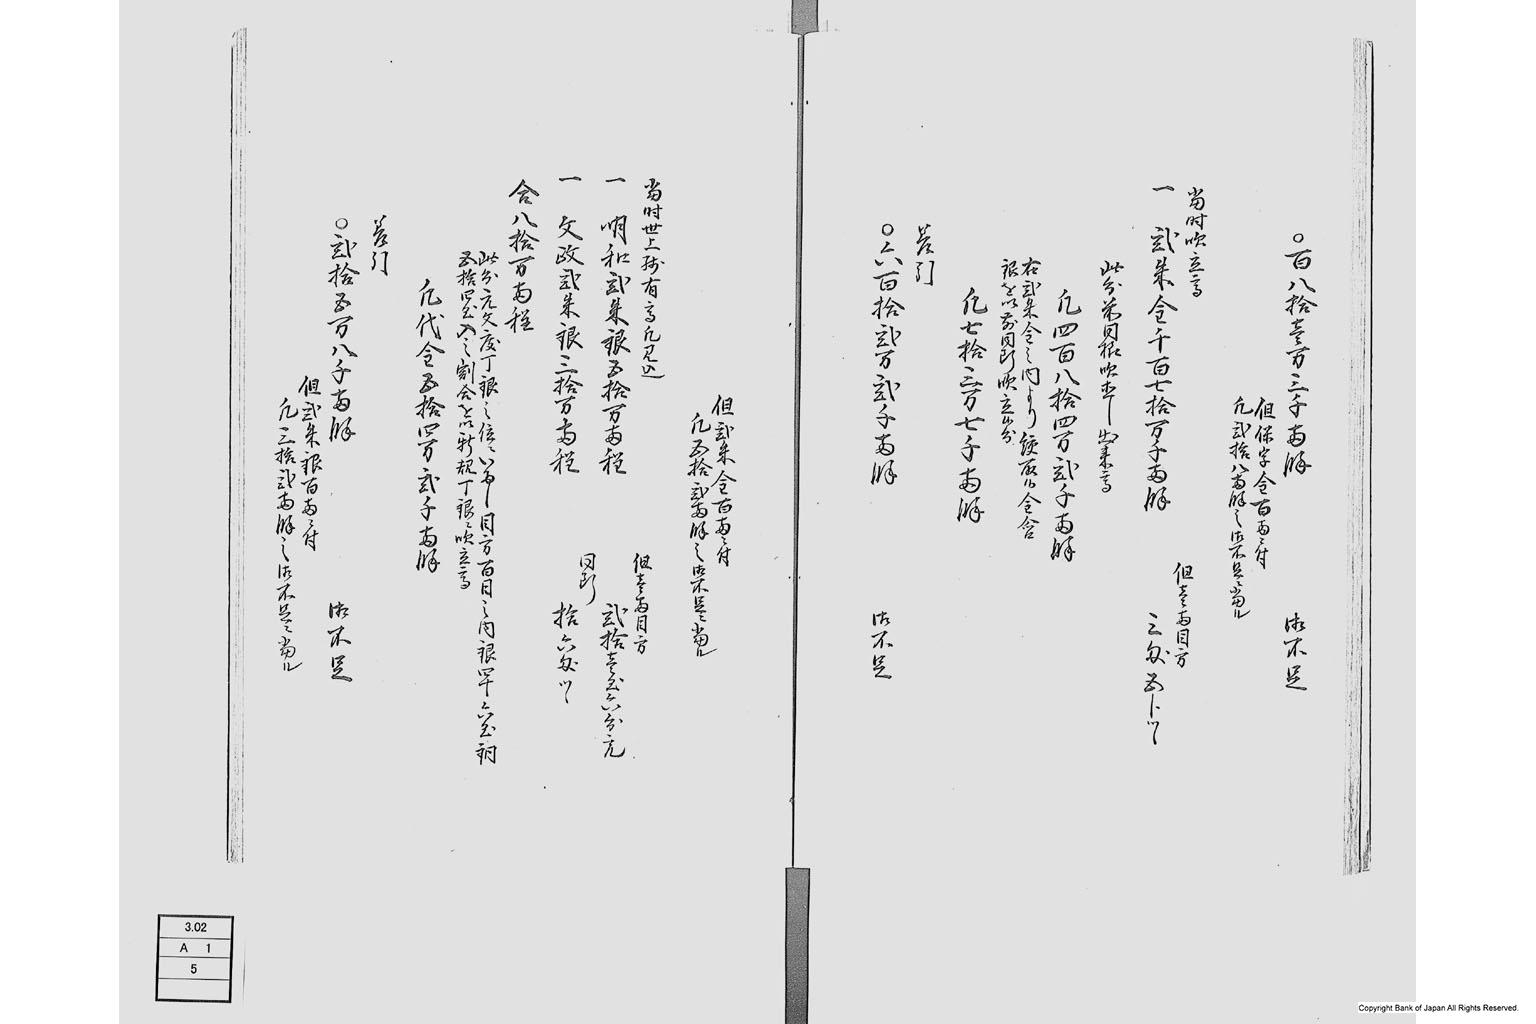 ○百八拾壱万三千両余 御不足
但保字金百両ニ付
凡弐拾八両余之御不足ニ当ル
当時吹立高
一 弐朱金千百七拾万千両余
但壱両目方
三匁五分ツヽ
此分
凡四百八拾四万弐千両余
右弐朱金之内より
凡七拾三万七千両余
差引
○六百拾弐万弐千両余 御不足
但弐朱金百両ニ付
凡五拾弐両余之御不足ニ当ル
当時世上残有高凡見込
一 明和弐朱銀五拾万両程
但壱両目方
弐拾壱匁六分宛
一 文政弐朱銀三拾万両程
同断
拾六匁ツヽ
合八拾万両程
此分元文度丁銀之位ニいたし目方百目之内銀四十六匁銅
五拾四匁入之割合を以新規丁銀ニ吹立高
凡代金五拾四万弐千両余
差引
○弐拾五万八千両余 御不足
但弐朱銀百両ニ付
凡三拾弐両余之御不足ニ当ル
3.02
A 1
5
Copyright Bank of Japan All Rights Reserved.